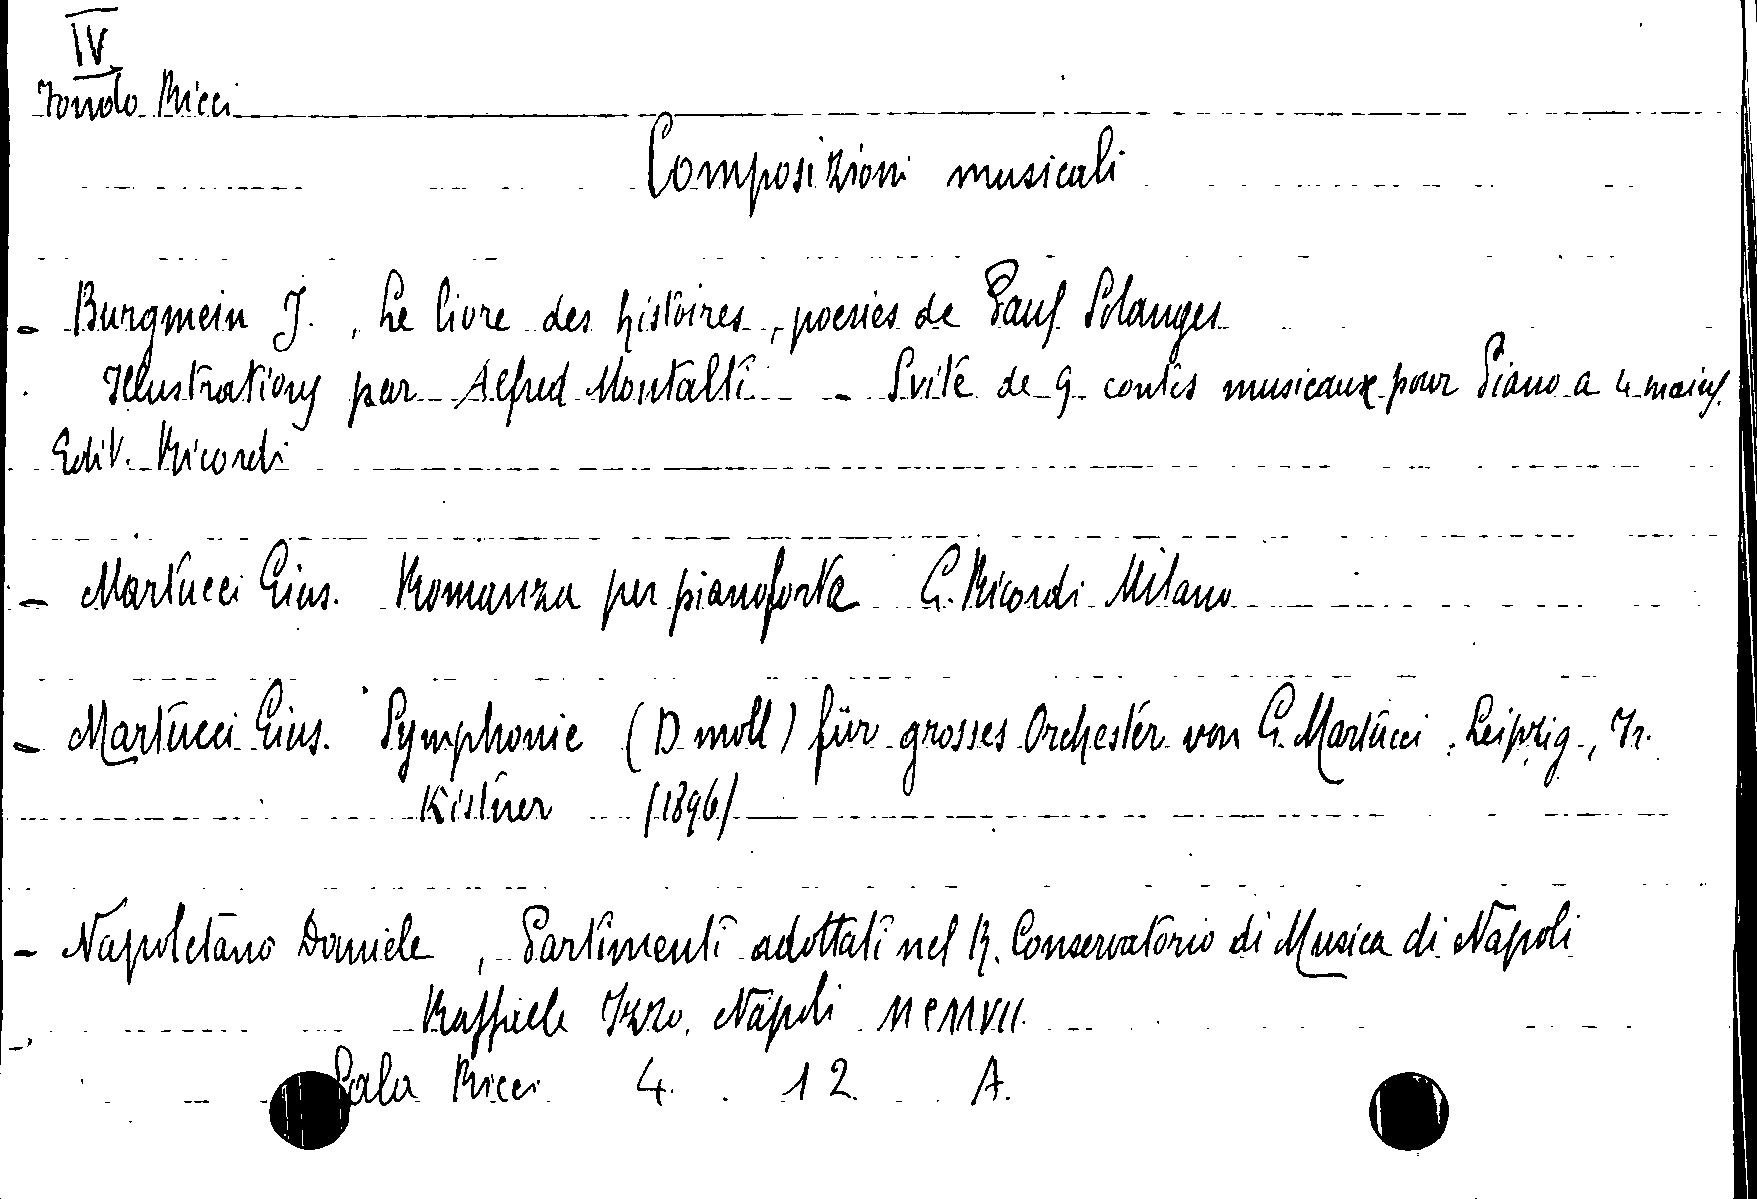 IV
Fondo Ricci
Composizioni musicali
- Burgmein J. , Le livre des histoires, poesies de Paul Solanges
Illustrations par Alfred Montalti - Svite de 9 contes musicaux pour Piano a 4 mains.
Edit. Ricordi
- Martucci Gius. Romanza per pianoforte G. Ricordi Milano
- Martucci Gius. Symphonie (D moll) für grosses Orchester von G. Martucci. Leipzig, Fr.
Kistner (1896)
- Napoletano Daniele , Partimenti adottati nel R. Conservatorio di Musica di Napoli
Raffaele Izzo. Napoli MCMVII
Sala Ricci 4. 12 A.